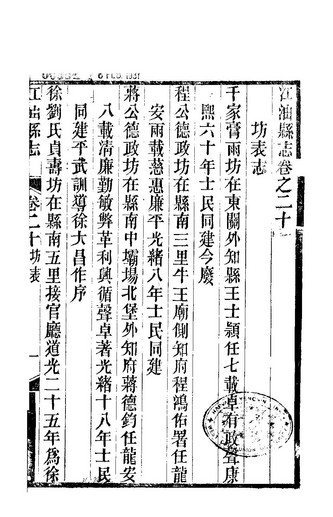 江油縣志卷之二十
坊表志
千家膏雨坊在東關外知縣王士頴任七載卓有政聲康
熙六十年士民同建今廢
程公德政坊在縣南三里牛王廟側知府程鴻佑署任龍
安兩載慈惠廉平光緒八年士民同建
蔣公德政坊在縣南中壩場北堡外知府蔣德鈞任龍安
八載清廉勤敏弊革利興循聲卓著光緒十八年士民
同建平武訓導徐大昌作序
徐劉氏貞壽坊在縣南五里接官廳道光二十五年爲徐
江油縣志
卷二十坊表
一